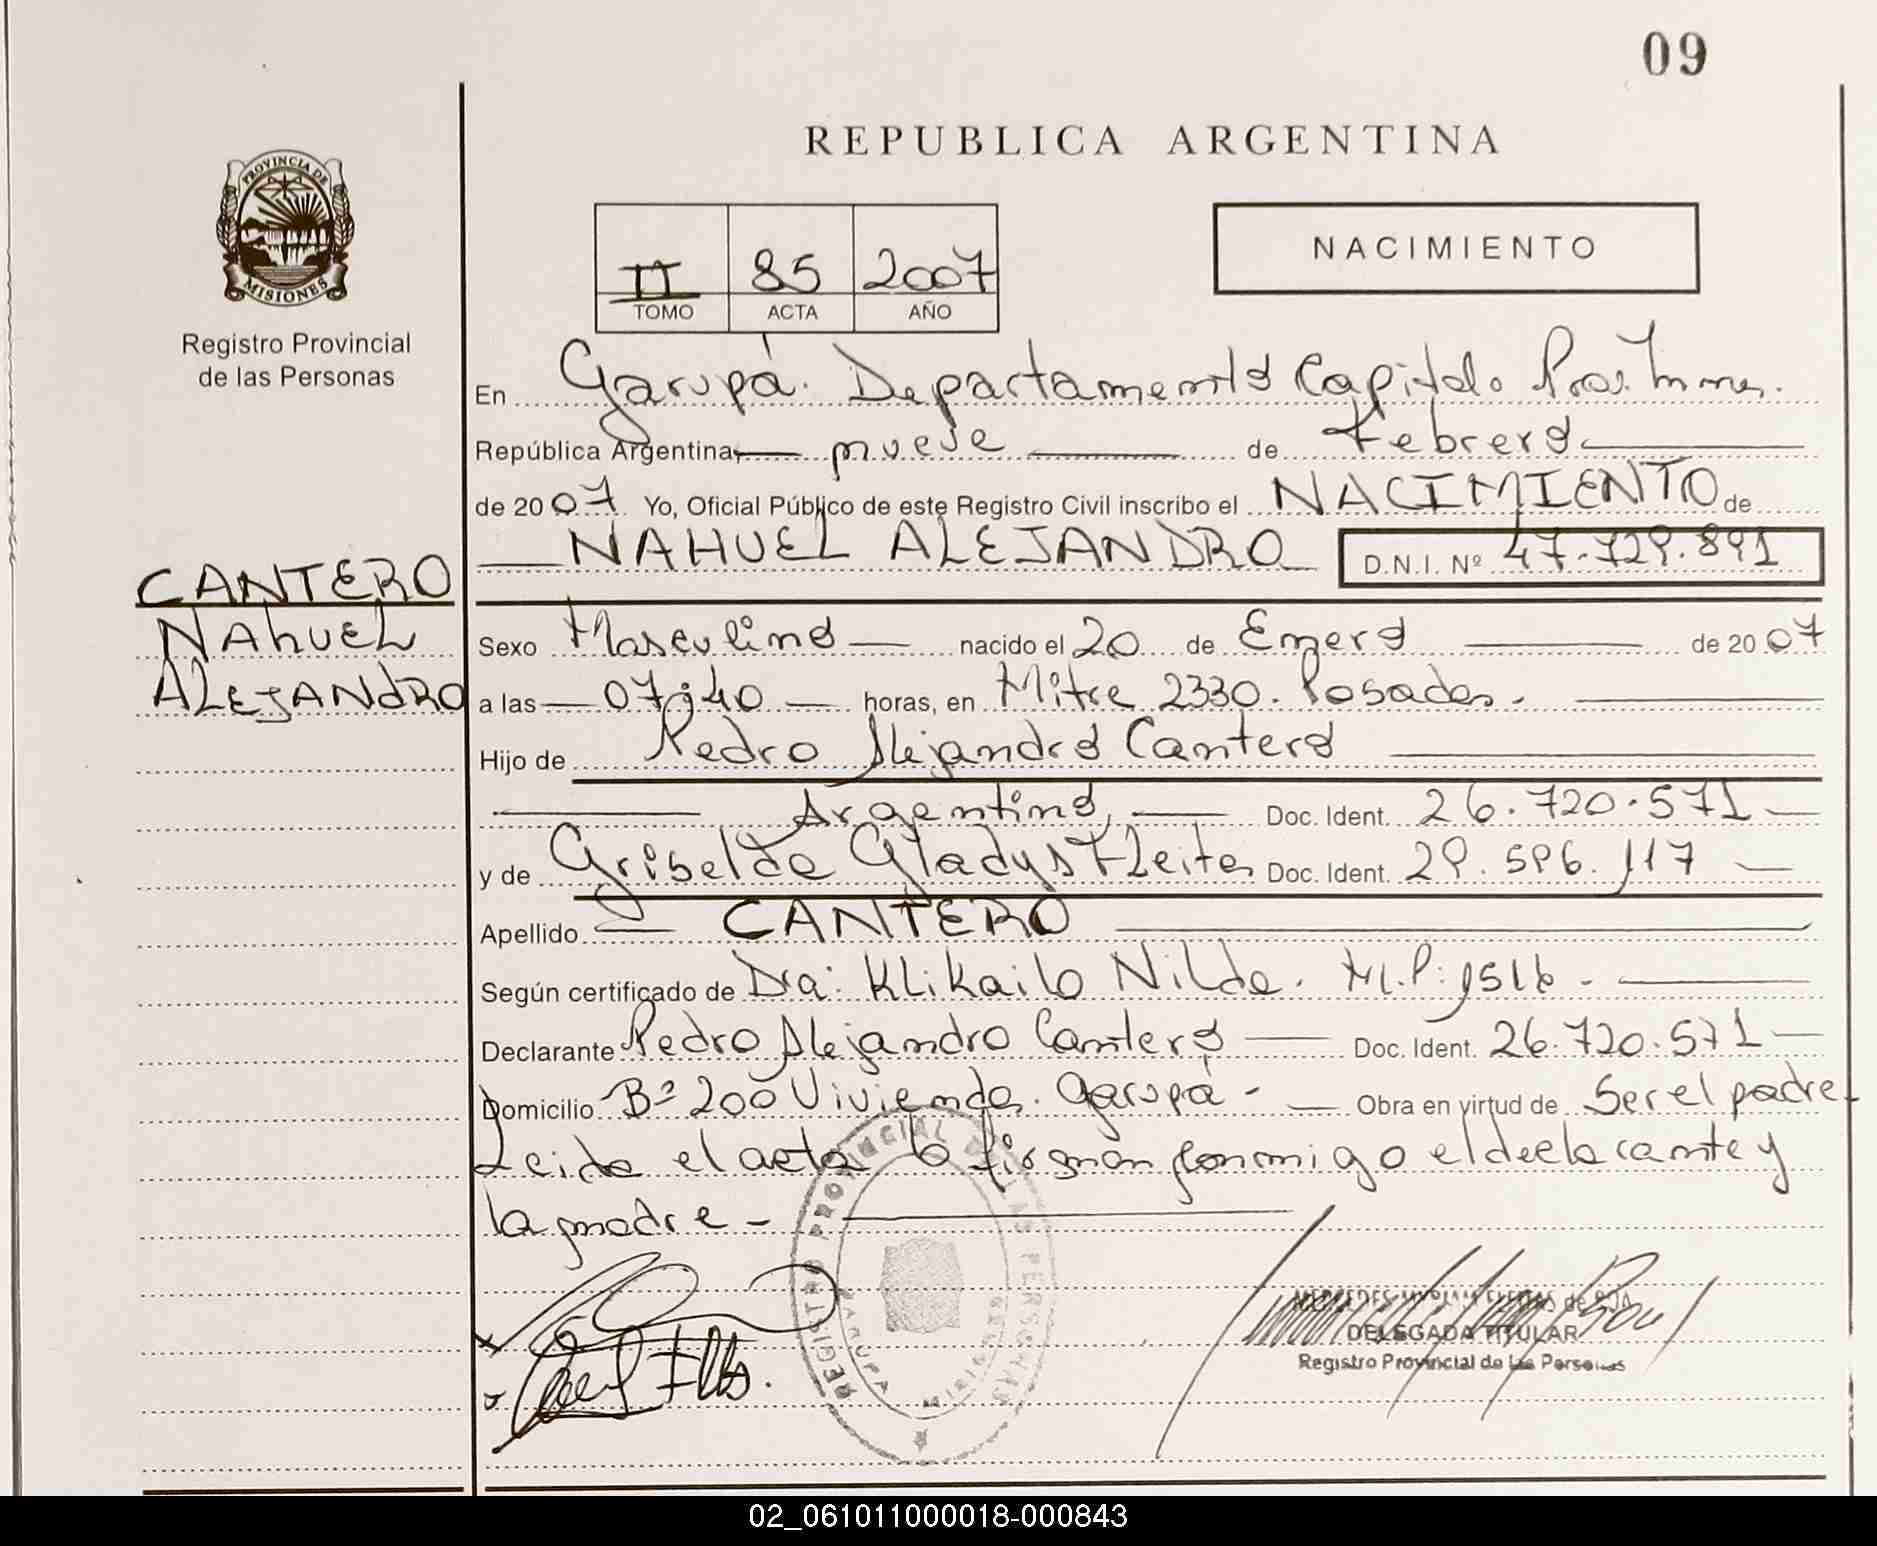 09
REPUBLICA ARGENTINA
PROVINCIA DE
MISIONES
Registro Provincial
de las Personas
II 85 2007
TOMO ACTA AÑO
NACIMIENTO
En Garupá. Departamento Capital
República Argentina, nueve de Febrero
de 2007 Yo, Oficial Público de este Registro Civil inscribo el NACIMIENTO de
NAHUEL ALEJANDRO D.N.I. Nº 47.729.891
CANTERO
NAhUEL
ALEJANdRO
Sexo Masculino nacido el 20 de Enero de 2007
a las 07:40 horas, en Mitre 2330. Posadas.
Hijo de Pedro Alejandro Cantero
Argentino, Doc. Ident. 26.720.571
y de Griselda Gladys Fleitas Doc. Ident. 29.596.117
Apellido CANTERO
Según certificado de Dra: Klikailo Nilda. M.P:
Declarante Pedro Alejandro Cantero Doc. Ident. 26.720.571
Domicilio Bº 200 Vivienda. Garupá - Obra en virtud de Ser el padre
Leida el acta la firman conmigo el declarante y
la madre -
REGISTRO PROVINCIAL DE LAS PERSONAS
GARUPA MISIONES
DELEGADA TITULAR
Registro Provincial de las Personas
02_061011000018-000843